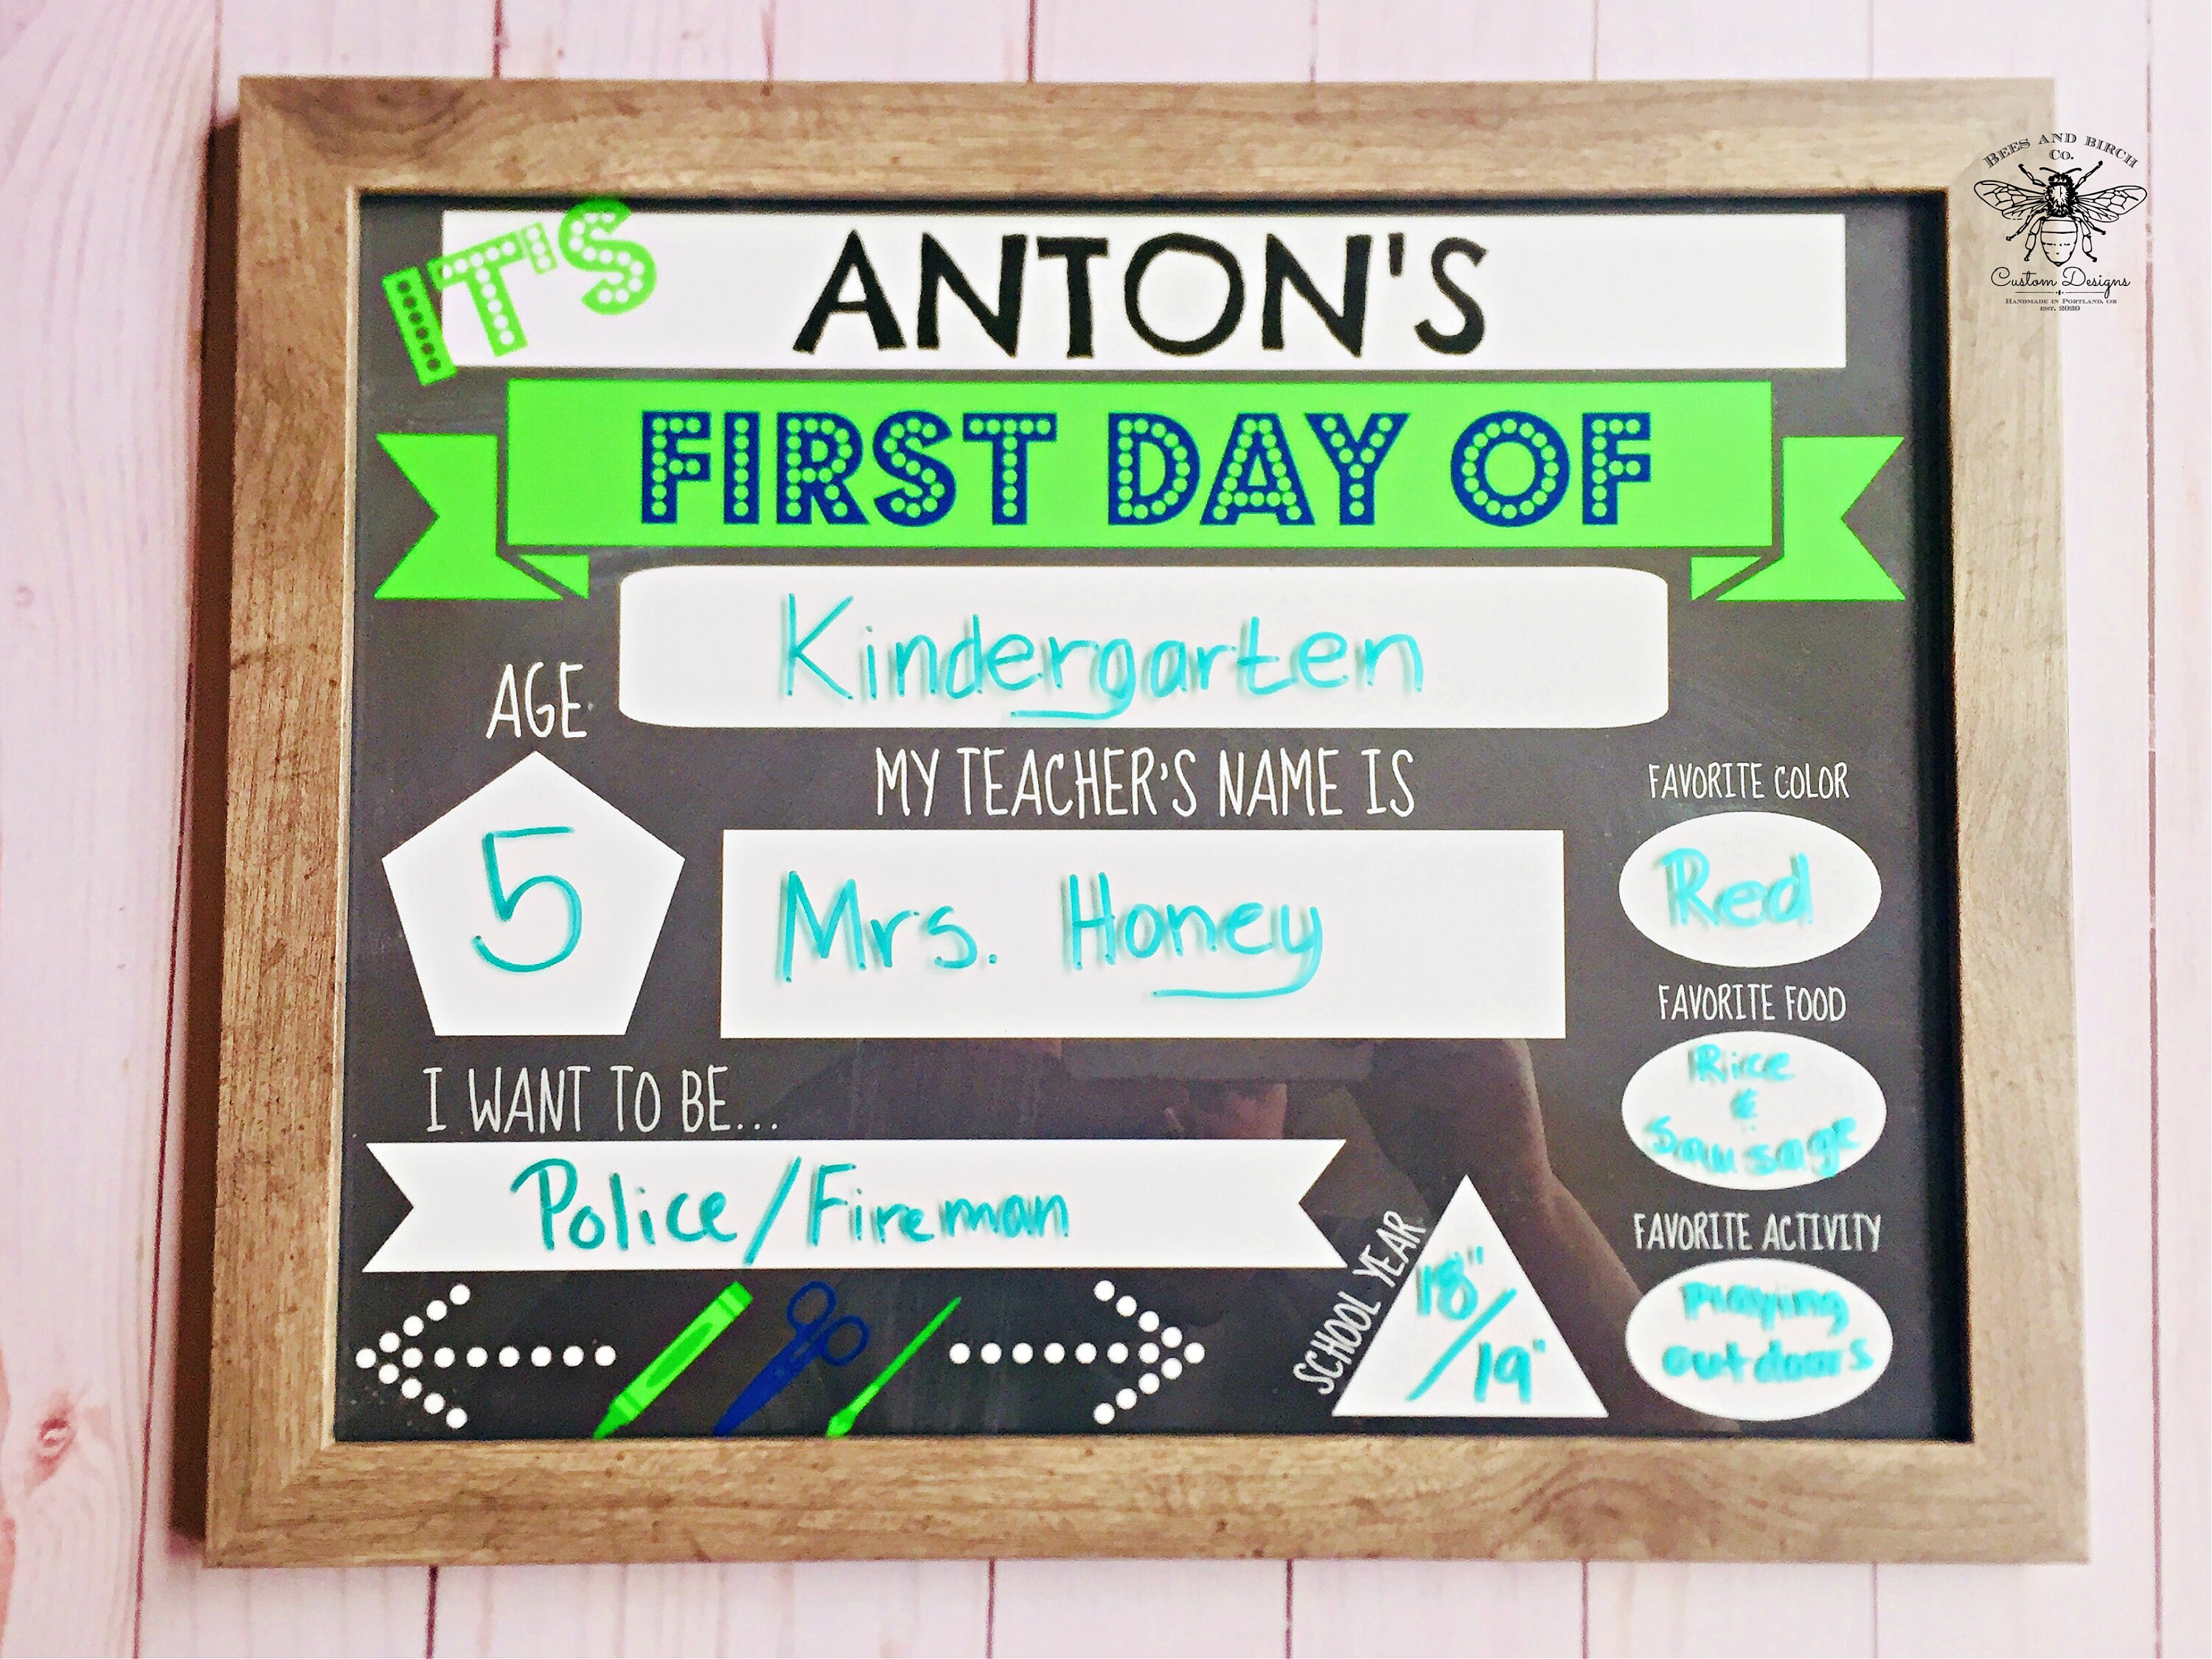 IT'S ANTON'S
FIRST DAY OF
Kindergarten
AGE
5
MY TEACHER'S NAME IS
Mrs. Honey
FAVORITE COLOR
Red
FAVORITE FOOD
Rice
&
Sausage
I WANT TO BE...
Police/Fireman
SCHOOL YEAR
18"/19"
FAVORITE ACTIVITY
Playing
outdoors
BEES AND BIRCH
CO.
Custom Designs
HANDMADE IN PORTLAND, OR
EST. 2020